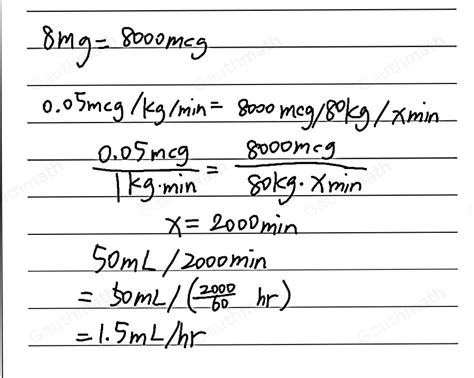 8mg = 8000mcg
0.05mcg/kg/min = 8000 mcg/80kg/x min
0.05mcg / 1kg·min = 8000mcg / 80kg·x min
x = 2000min
50mL/2000min
= 50mL/(2000/60 hr)
= 1.5mL/hr